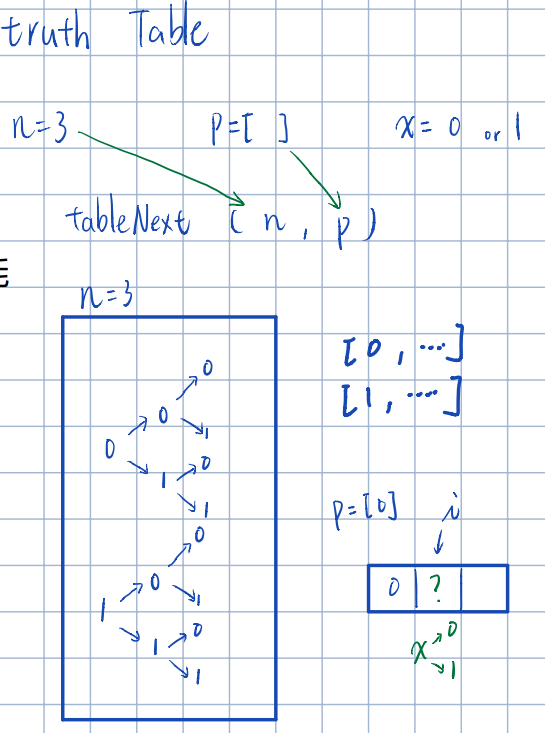 truth Table
n=3 p=[ ] x= 0 or 1
tableNext ( n , p )
n=3
[0 , ....]
[1 , ....]
0
0
1
0
0
1
1
p=[0] i
0
0
0 ?
1
1
1
0
x 0
1
1